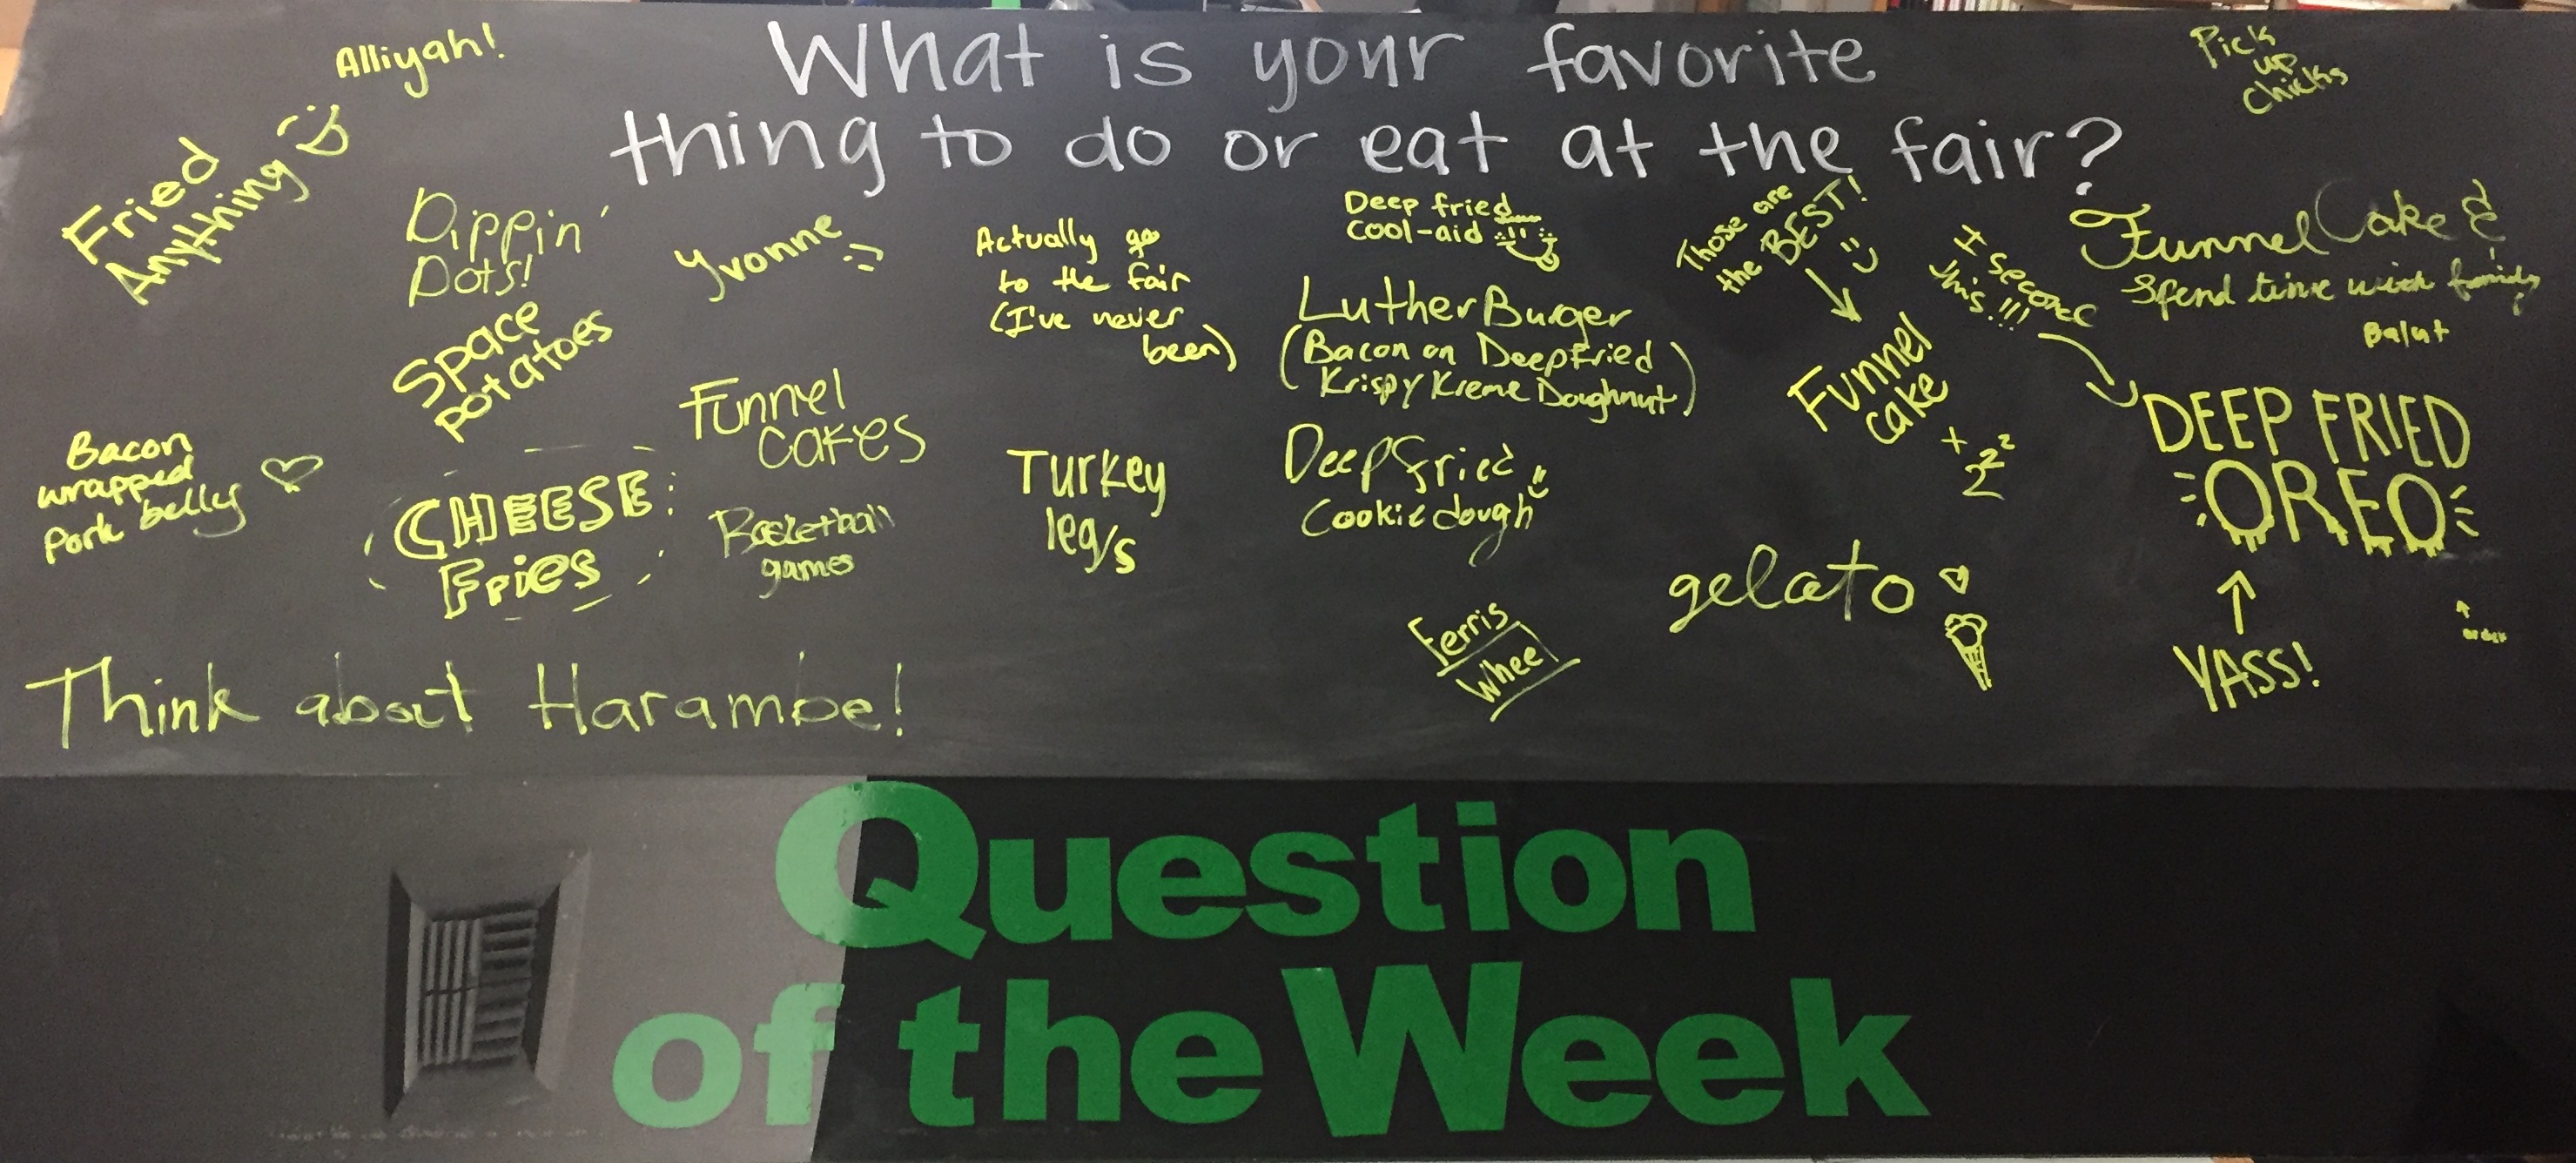 What is your favorite
thing to do or eat at the fair?
Alliyah!
Fried
Anything
Dippin'
Dots!
Space
potatoes
Yvonne
Actually go
to the fair
(I've never
been)
Deep fried
Cool-aid
Luther Burger
(Bacon on Deep Fried
Krispy Kreme Doughnut)
Those are
the BEST!
Funnel
cake
I second
this!!!
Pick
up
chicks
Funnel Cake &
Spend time with family
Balut
DEEP FRIED
OREO
YASS!
Bacon
wrapped
Pork belly
CHEESE
Fries
Funnel
cakes
Basketball
games
Turkey
legs
Deep fried
Cookie dough
gelato
Ferris
Wheel
Think about Harambe!
Question
of the Week